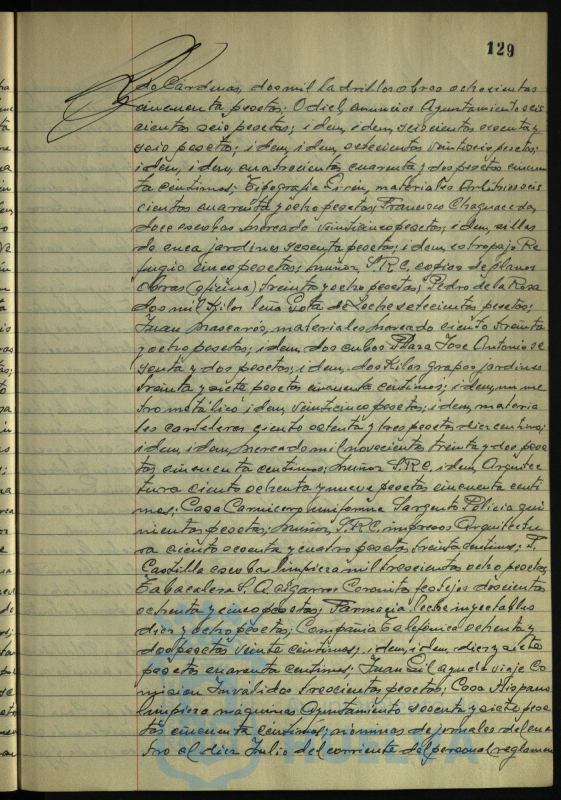 129
do Cárdenas, dos mil ladrillos obras ochocientas
cincuenta pesetas; Odiel, anuncios Ayuntamiento seis
cientas seis pesetas; idem, idem, seiscientas sesenta y
seis pesetas; idem, idem, setecientas veintiseis pesetas;
idem, idem, cuatrocientas cuarenta y dos pesetas cincuen
ta centimos; Tipografia Girón, materiales Arbitrios seis
cientas cuarenta y ocho pesetas; Francisco Chaguaceda,
doce escobas mercado veinticinco pesetas; idem, sillas
de enea jardines sesenta pesetas; idem, estropajo Re
fugio cinco pesetas; Muñoz, S.R.C. copias de planos
Obras (oficina) treinta y ocho pesetas; Pedro de la Rosa
dos mil kilos leña Gota de Leche setecientas pesetas;
Juan Mascarós, materiales mercado ciento treinta
y ocho pesetas; idem, dos cubos Plaza Jose Antonio se
senta y dos pesetas; idem, dos kilos grapas jardines
treinta y siete pesetas cincuenta centimos; idem, un me
tro metálico idem, veinticinco pesetas; idem, materia
les carteleras ciento ochenta y tres pesetas diez centimos;
idem, idem, mercado mil novecientas treinta y dos pese
tas cincuenta centimos; Muñoz S.R.C. idem, Arquitec
tura ciento ochenta y nueve pesetas cincuenta centi
mos; Casa Carnicero uniforme Sargento Policia qui
nientas pesetas; Muñoz, S.R.C. impresos Arquitectu
ra ciento sesenta y cuatro pesetas treinta centimos; F.
Castilla escobas limpieza mil trescientas ocho pesetas;
Tabacalera S.A. cigarros Coronita festejos doscientas
ochenta y cinco pesetas; Farmacia leche inyectables
diez y ocho pesetas; Compañia Telefónica ochenta y
dos pesetas veinte centimos; idem, idem, diez y siete
pesetas cuarenta centimos; Juan Gil ayuda viaje Co
mision Invalidos trescientas pesetas; Casa Hispano
limpieza maquinas Ayuntamiento sesenta y siete pese
tas cincuenta centimos; nóminas de jornales del cua
tro al diez Julio del corriente del personal reglamen